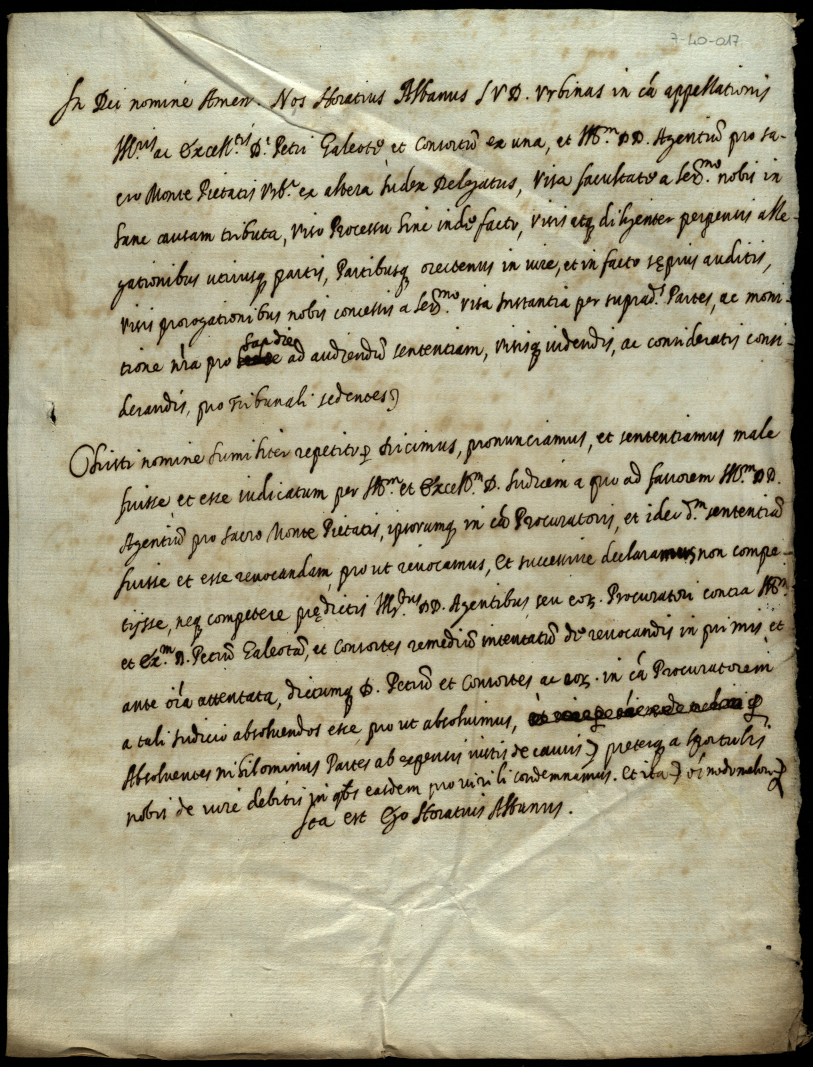 7-40-017
In Dei nomine Amen. Nos Horatius Albanus I V D. Urbinas in cā appellationis
Ill.ris ac Excell.tis D. Petri Galeote et Consortiū ex una, et Ill.m DD. Agentiū pro sa-
cro Monte Pietatis Urb. ex altera Iudex Delegatus, Visa facultate a Ser.mo nobis in
hanc causam tributa, viso Processu hinc inde facto, visis atq diligenter perpensis alle-
gationibus utriusq partis, Partibusq oretenus in iure, et in facto sępius auditis,
visis prorogationibus nobis concessis a Ser.mo visa Instantia per suprad.s Partes, ac moni-
tione nr̄a pro hac die ad audiendū sententiam, visisq videndis, ac consideratis consi-
derandis, pro Tribunali sedentes
Christi nomine humiliter repetito dicimus, pronunciamus, et sententiamus male
fuisse, et esse iudicatum per Ill.m et Excell.m D. Iudicem a quo ad favorem Ill.m DD.
Agentiū pro sacro Monte Pietatis, ipsorumq in cā Procuratoris, et ideo d.m sententiā
fuisse et esse revocandam, prout revocamus, Et successive declaramus non compe-
tijsse, neq competere prędictis Ill.bus DD. Agentibus, seu eoꝝ. Procuratori contra Ill.m
et Ex.m D. Petrū Galeotā, et Consortes remediū intentatū de revocandis in primis, et
ante oīa attentata, dictumq D. Petrū et Consortes ac eoꝝ. in cā Procuratorem
a tali Iudicio absolvendos esse, prout absolvimus,
Absolventes nihilominus Partes ab expensis iustis de causis pręterq a sportulis
nobis de iure debitis in qbs easdem pro virili condemnamus. Et ita oī modo meliori
Ita est Ego Horatius Albanus.